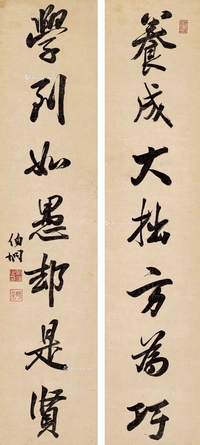 養成大拙方為巧
學到如愚却是賢
伯炯